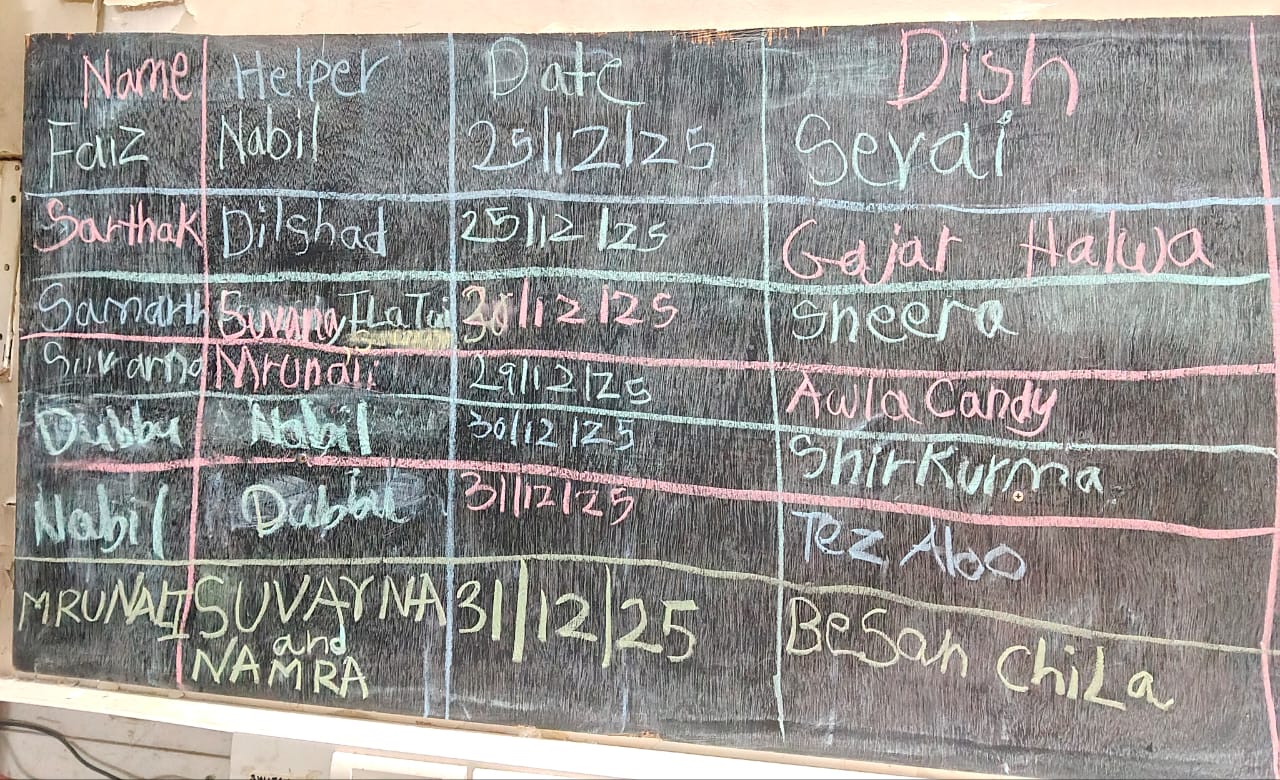 Name Helper Date Dish
Faiz Nabil 25/12/25 Sevai
Sarthak Dilshad 25/12/25 Gajar Halwa
Samarth Suvarng ILa Tai 30/12/25 Sheera
Suvarna Mrunali 29/12/25 Awla Candy
Dubbu Nabil 30/12/25 ShirKurma
Nabil Dubbu 31/12/25 Tez Aloo
MRUNALI SUVARNA 31/12/25 BeSan ChiLa
and
NAMRA